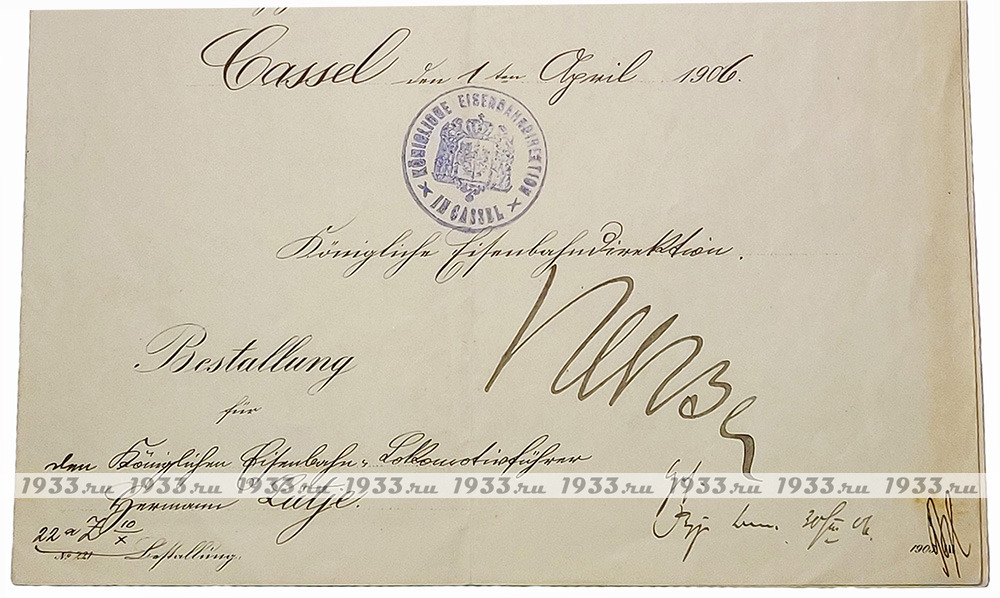 Cassel den 1ten April 1906.
KÖNIGLICHE EISENBAHNDIREKTION
IN CASSEL
Königliche Eisenbahndirektion.
Bestallung
für
den Königlichen Eisenbahn-Lokomotivführer
1933.ru 1933.ru 1933.ru 1933.ru 1933.ru 1933.ru 1933.ru 1933.ru
Hermann Lütje.
22 a Z 10/X
No 221 Bestallung.
190